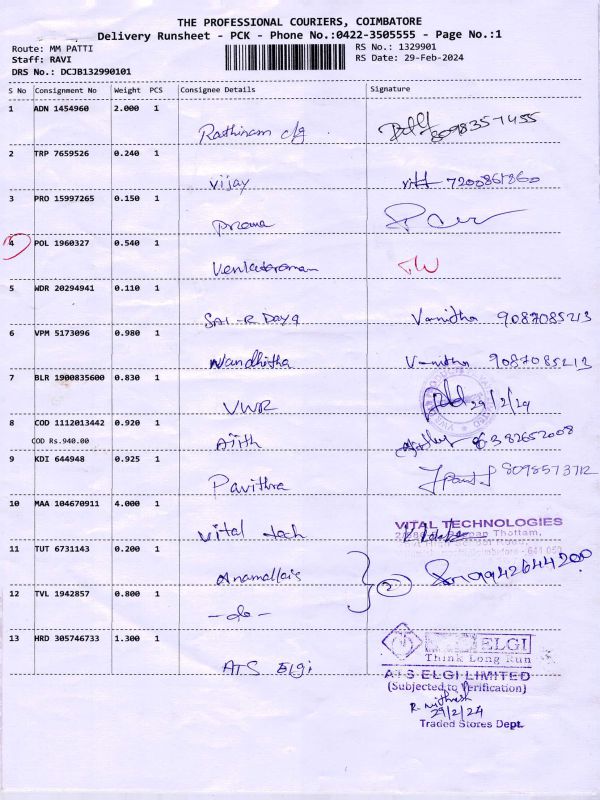 THE PROFESSIONAL COURIERS, COIMBATORE
Delivery Runsheet - PCK - Phone No.:0422-3505555 - Page No.:1
Route: MM PATTI
RS No.: 1329901
Staff: RAVI
RS Date: 29-Feb-2024
DRS No.: DCJB132990101
S No Consignment No Weight PCS Consignee Details Signature
1 ADN 1454960 2.000 1
Rathinam c/g
2 TRP 7659526 0.240 1
Vijay
3 PRO 15997265 0.150 1
Prema
4 POL 1960327 0.540 1
Venkataraman
5 WDR 20294941 0.110 1
SAI-R Daya Vanitha 9087085213
6 VPM 5173096 0.980 1
Nandhitha Vanitha 9087085213
7 BLR 1900835600 0.830 1
VWR 29/2/24
8 COD 1112013442 0.920 1
COD Rs.940.00
Ajith
9 KDI 644948 0.925 1
Pavithra 8098573712
10 MAA 104670911 4.000 1
Vital tech
VITAL TECHNOLOGIES
Thottam,
11 TUT 6731143 0.200 1
Anamallais
2 9942644200
12 TVL 1942857 0.800 1
-do-
13 HRD 305746733 1.300 1
ATS Elgi
ELGI
Think Long Run
ATS ELGI LIMITED
(Subjected to Verification)
29/2/24
Traded Stores Dept.